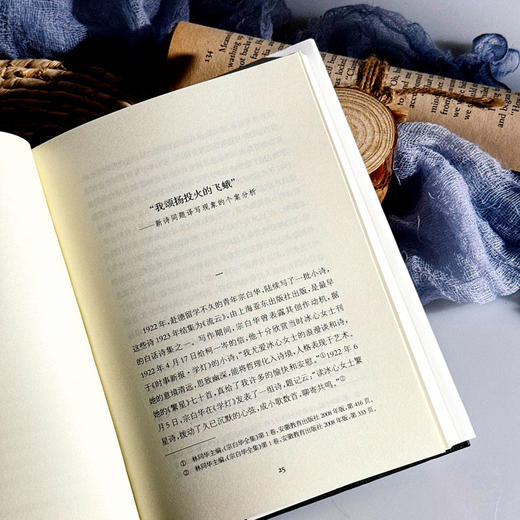 “我颂扬投火的飞蛾”
——新诗同题译写现象的个案分析
一
1922年，赴德留学不久的青年宗白华，陆续写了一批小诗，
这些诗1923年结集为《流云》，由上海亚东出版社出版，是最早
的白话诗集之一。写作期间，宗白华曾表露其创作动机，据
1922年4月17日他给柯一岑的信，他十分欣赏当时冰心女士刊
于《时事新报·学灯》的小诗，“我尤爱冰心女士的浪漫谈和诗，
她的意境清远，思致幽深，能将哲理化入诗境，人格表现于艺术。
她的《繁星》七十首，真给了我许多的愉快和安慰。”①1922年6
月5日，宗白华在《学灯》发表了一组诗，题记云：“读冰心女士繁
星诗，拨动了久已沉默的心弦，成小歌数首，聊寄共鸣。”②
① 林同华主编：《宗白华全集》第1卷，安徽教育出版社2008年版，第416页。
② 林同华主编：《宗白华全集》第1卷，安徽教育出版社2008年版，第333页。
25
134